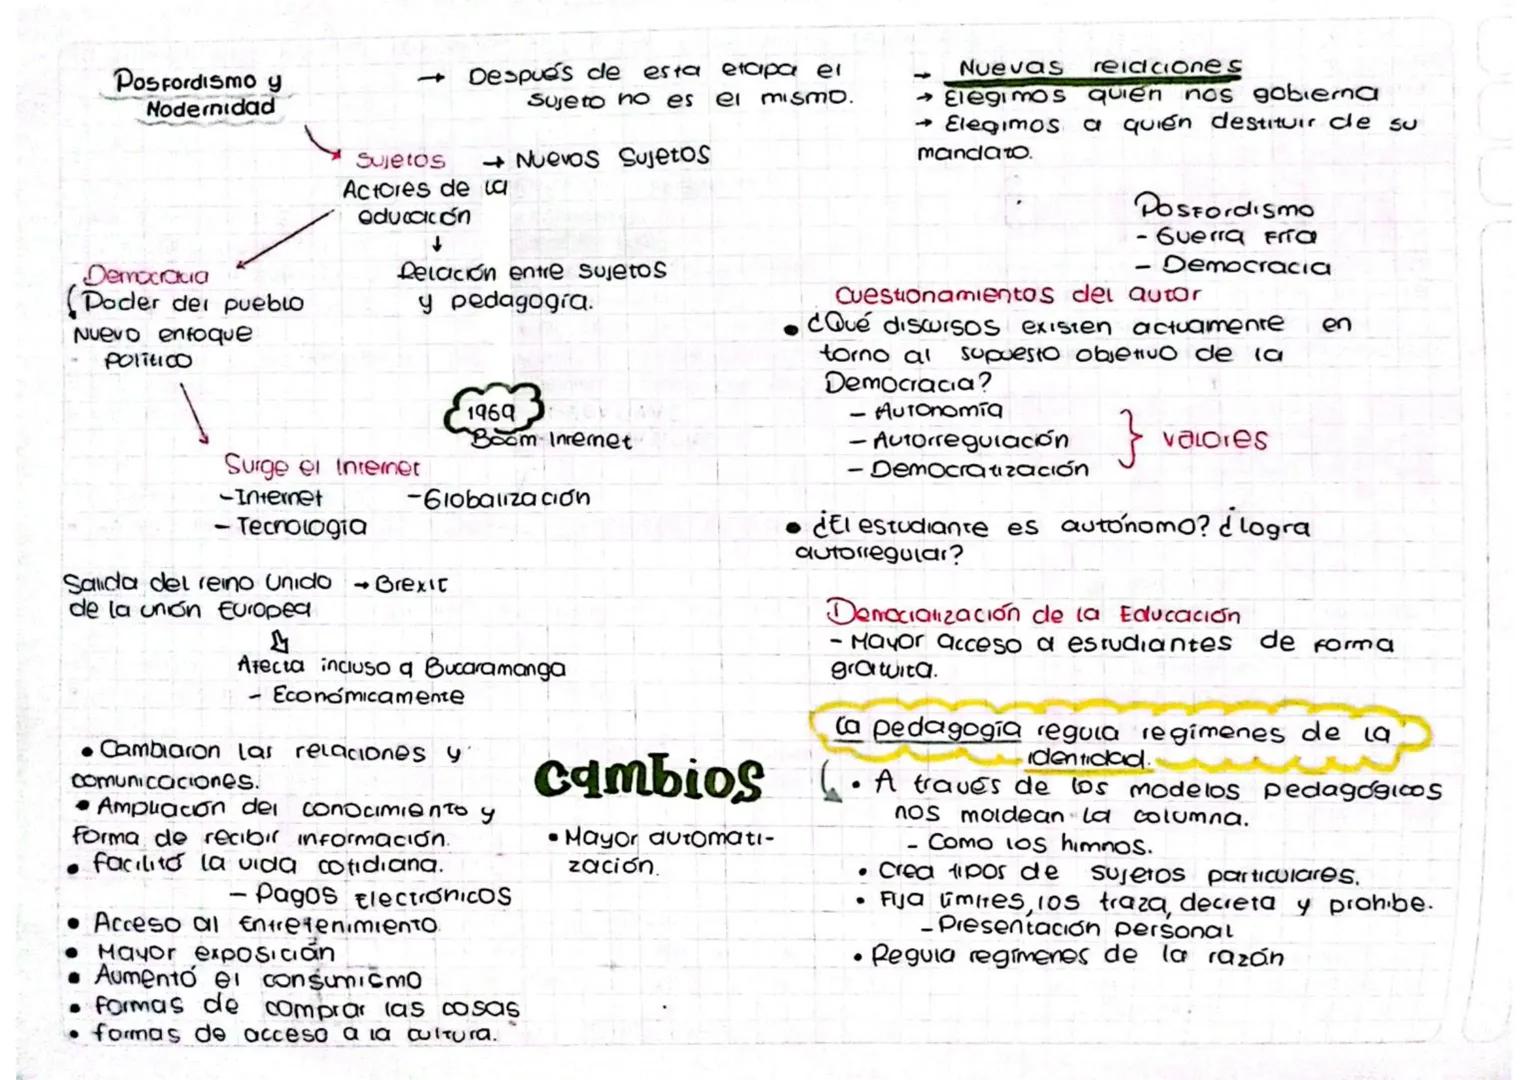 Posfordismo y
Modernidad
→ Después de esta etapa el
sujeto no es el mismo.
Sujetos → Nuevos Sujetos
Actores de la
educación
↓
Relación entre sujetos
y pedagogía.
Democracia
Poder del pueblo
Nuevo enfoque
político
1969
Boom Internet
Surge el Internet
- Internet - Globalización
- Tecnología
Salida del reino Unido → Brexit
de la unión Europea
Afecta incluso a Bucaramanga
- Económicamente
Cambios
• Cambiaron las relaciones y
comunicaciones.
• Ampliación del conocimiento y
forma de recibir información.
• facilitó la vida cotidiana.
- Pagos Electrónicos
• Acceso al Entretenimiento
• Mayor exposición
• Aumentó el consumismo
• formas de comprar las cosas
• formas de acceso a la cultura.
• Mayor automati-
zación.
→ Nuevas relaciones
→ Elegimos quién nos gobierna
→ Elegimos a quién destituir de su
mandato.
Posfordismo
- Guerra Fría
- Democracia
Cuestionamientos del autor
• ¿Qué discursos existen actuamente en
torno al supuesto objetivo de la
Democracia?
- Autonomía
- Autorregulación } valores
- Democratización
• ¿El estudiante es autónomo? ¿logra
autorregular?
Democratización de la Educación
- Mayor acceso a estudiantes de forma
gratuita.
La pedagogía regula regímenes de la
identidad.
• A través de los modelos pedagógicos
nos moldean la columna.
- Como los himnos.
• Crea tipos de sujetos particulares.
• Fija límites, los traza, decreta y prohibe.
- Presentación personal
• Regula regímenes de la razón